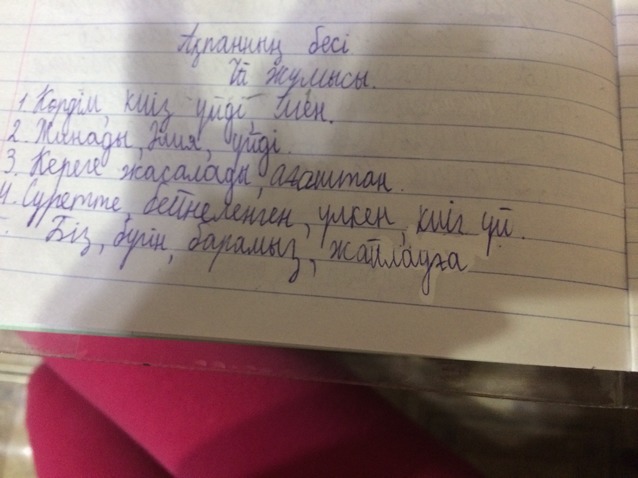 Ақпанның бесі
Үй жұмысы.
1. Көрдім, киіз үйді, мен.
2. Жинады, Әлия, үйді.
3. Кереге жасалады, ағаштан.
4. Суретте, бейнеленген, үлкен, киіз үй.
Біз, бүгін, барамыз, жайлауға